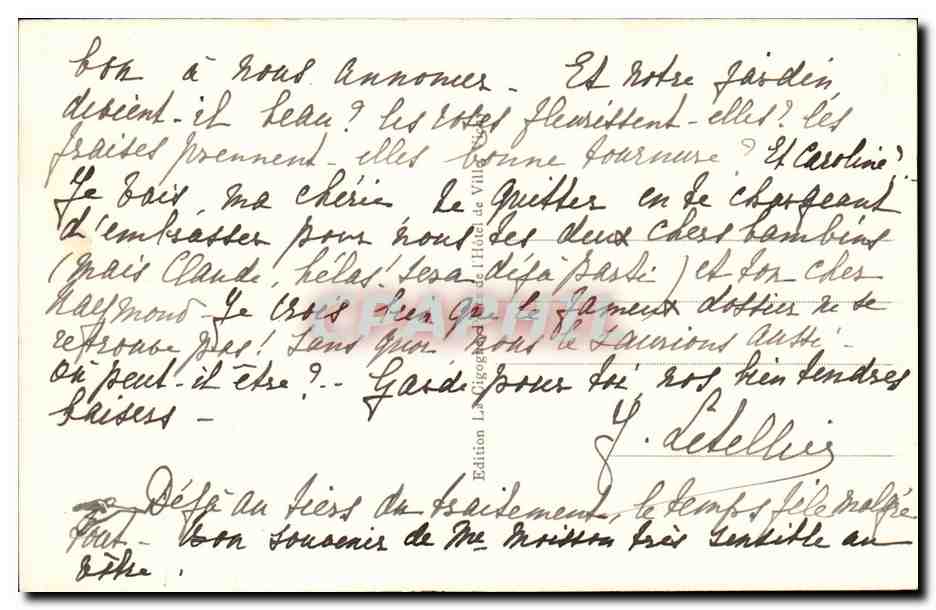 bon à nous annoncer. Et notre jardin,
devient-il beau? les roses fleurissent-elles? les
fraises prennent-elles bonne tournure? Et Caroline?
Je vais, ma chérie te quitter en te chargeant
d'embrasser pour nous tes deux chers bambins
(mais Claude, hélas! sera déjà parti) et ton cher
Raymond - Je crois bien que le fameux dossier ne se
retrouve pas! sans quoi nous le saurions aussi -
Où peut-il être? - Garde pour toi nos bien tendres
baisers -
Y. Letellier
Déjà au tiers du traitement, le temps file malgré
tout - bon souvenir de Me Moisson très sensible au
vôtre.
Edition La Cigogne de l'Hôtel de Ville
CPAPHIL